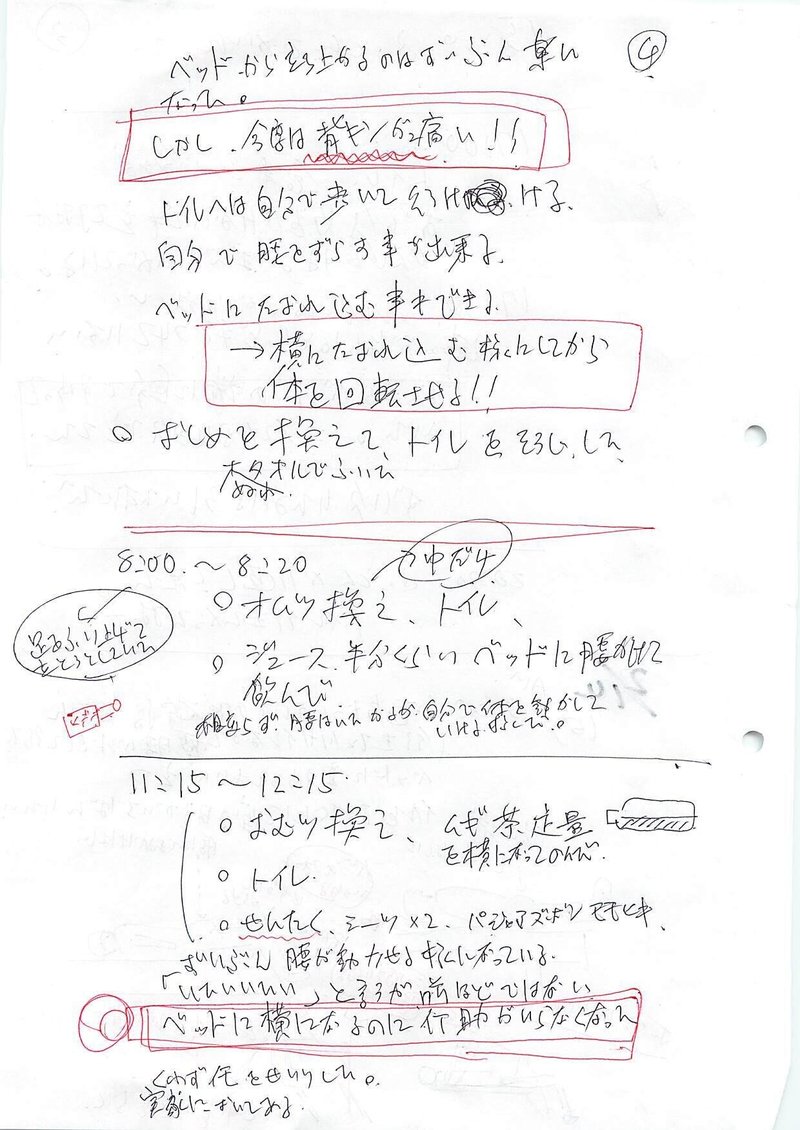 ④
ベッドから立ち上がるのはずいぶん楽に
なった。
しかし、今度は背キンが痛い!!
トイレへは自分で歩いて いける、
自分で腰をずらす事が出来る、
ベッドにたおれ込む事もできる
→横にたおれ込む様にしてから
体を回転させる!!
○ おしめを換えて、トイレをそうじした
タオルでふいた
ぬれ
8:00. ～ 8:20
○ オムツ換え、トイレ、
足をふり上げて
○ ジュース、半分くらいベッドに腰かけて
飲んで
相変らず、腰はいたがるが、自分で体を動かして
11:15 ～ 12:15
○ おむつ換え、ムギ茶定量
を横になってのんで
○ トイレ.
○ せんたく、シーツ×2、パジャマズボン モモヒキ、
ずいぶん腰が動かせる様になっている.
「いたいいたい」と言うが前ほどではない
ベッドに横になるのに介助がいらなくなった